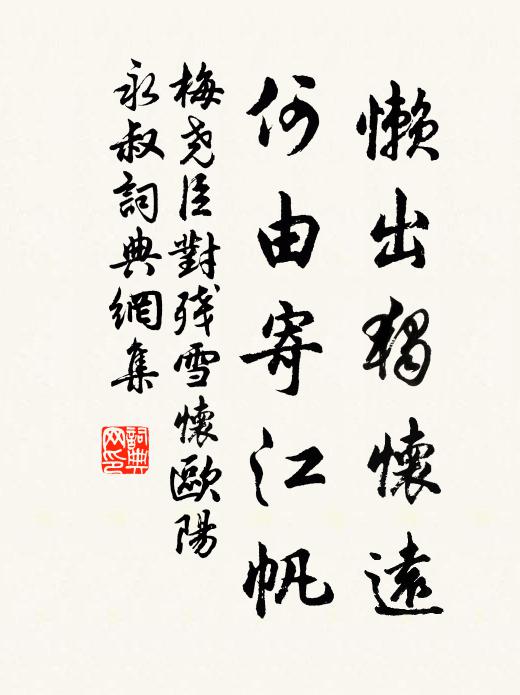 懶出獨懷遠
何由寄江帆
梅堯臣對残雪懷歐陽
永叔詞典網集
詞典
网印